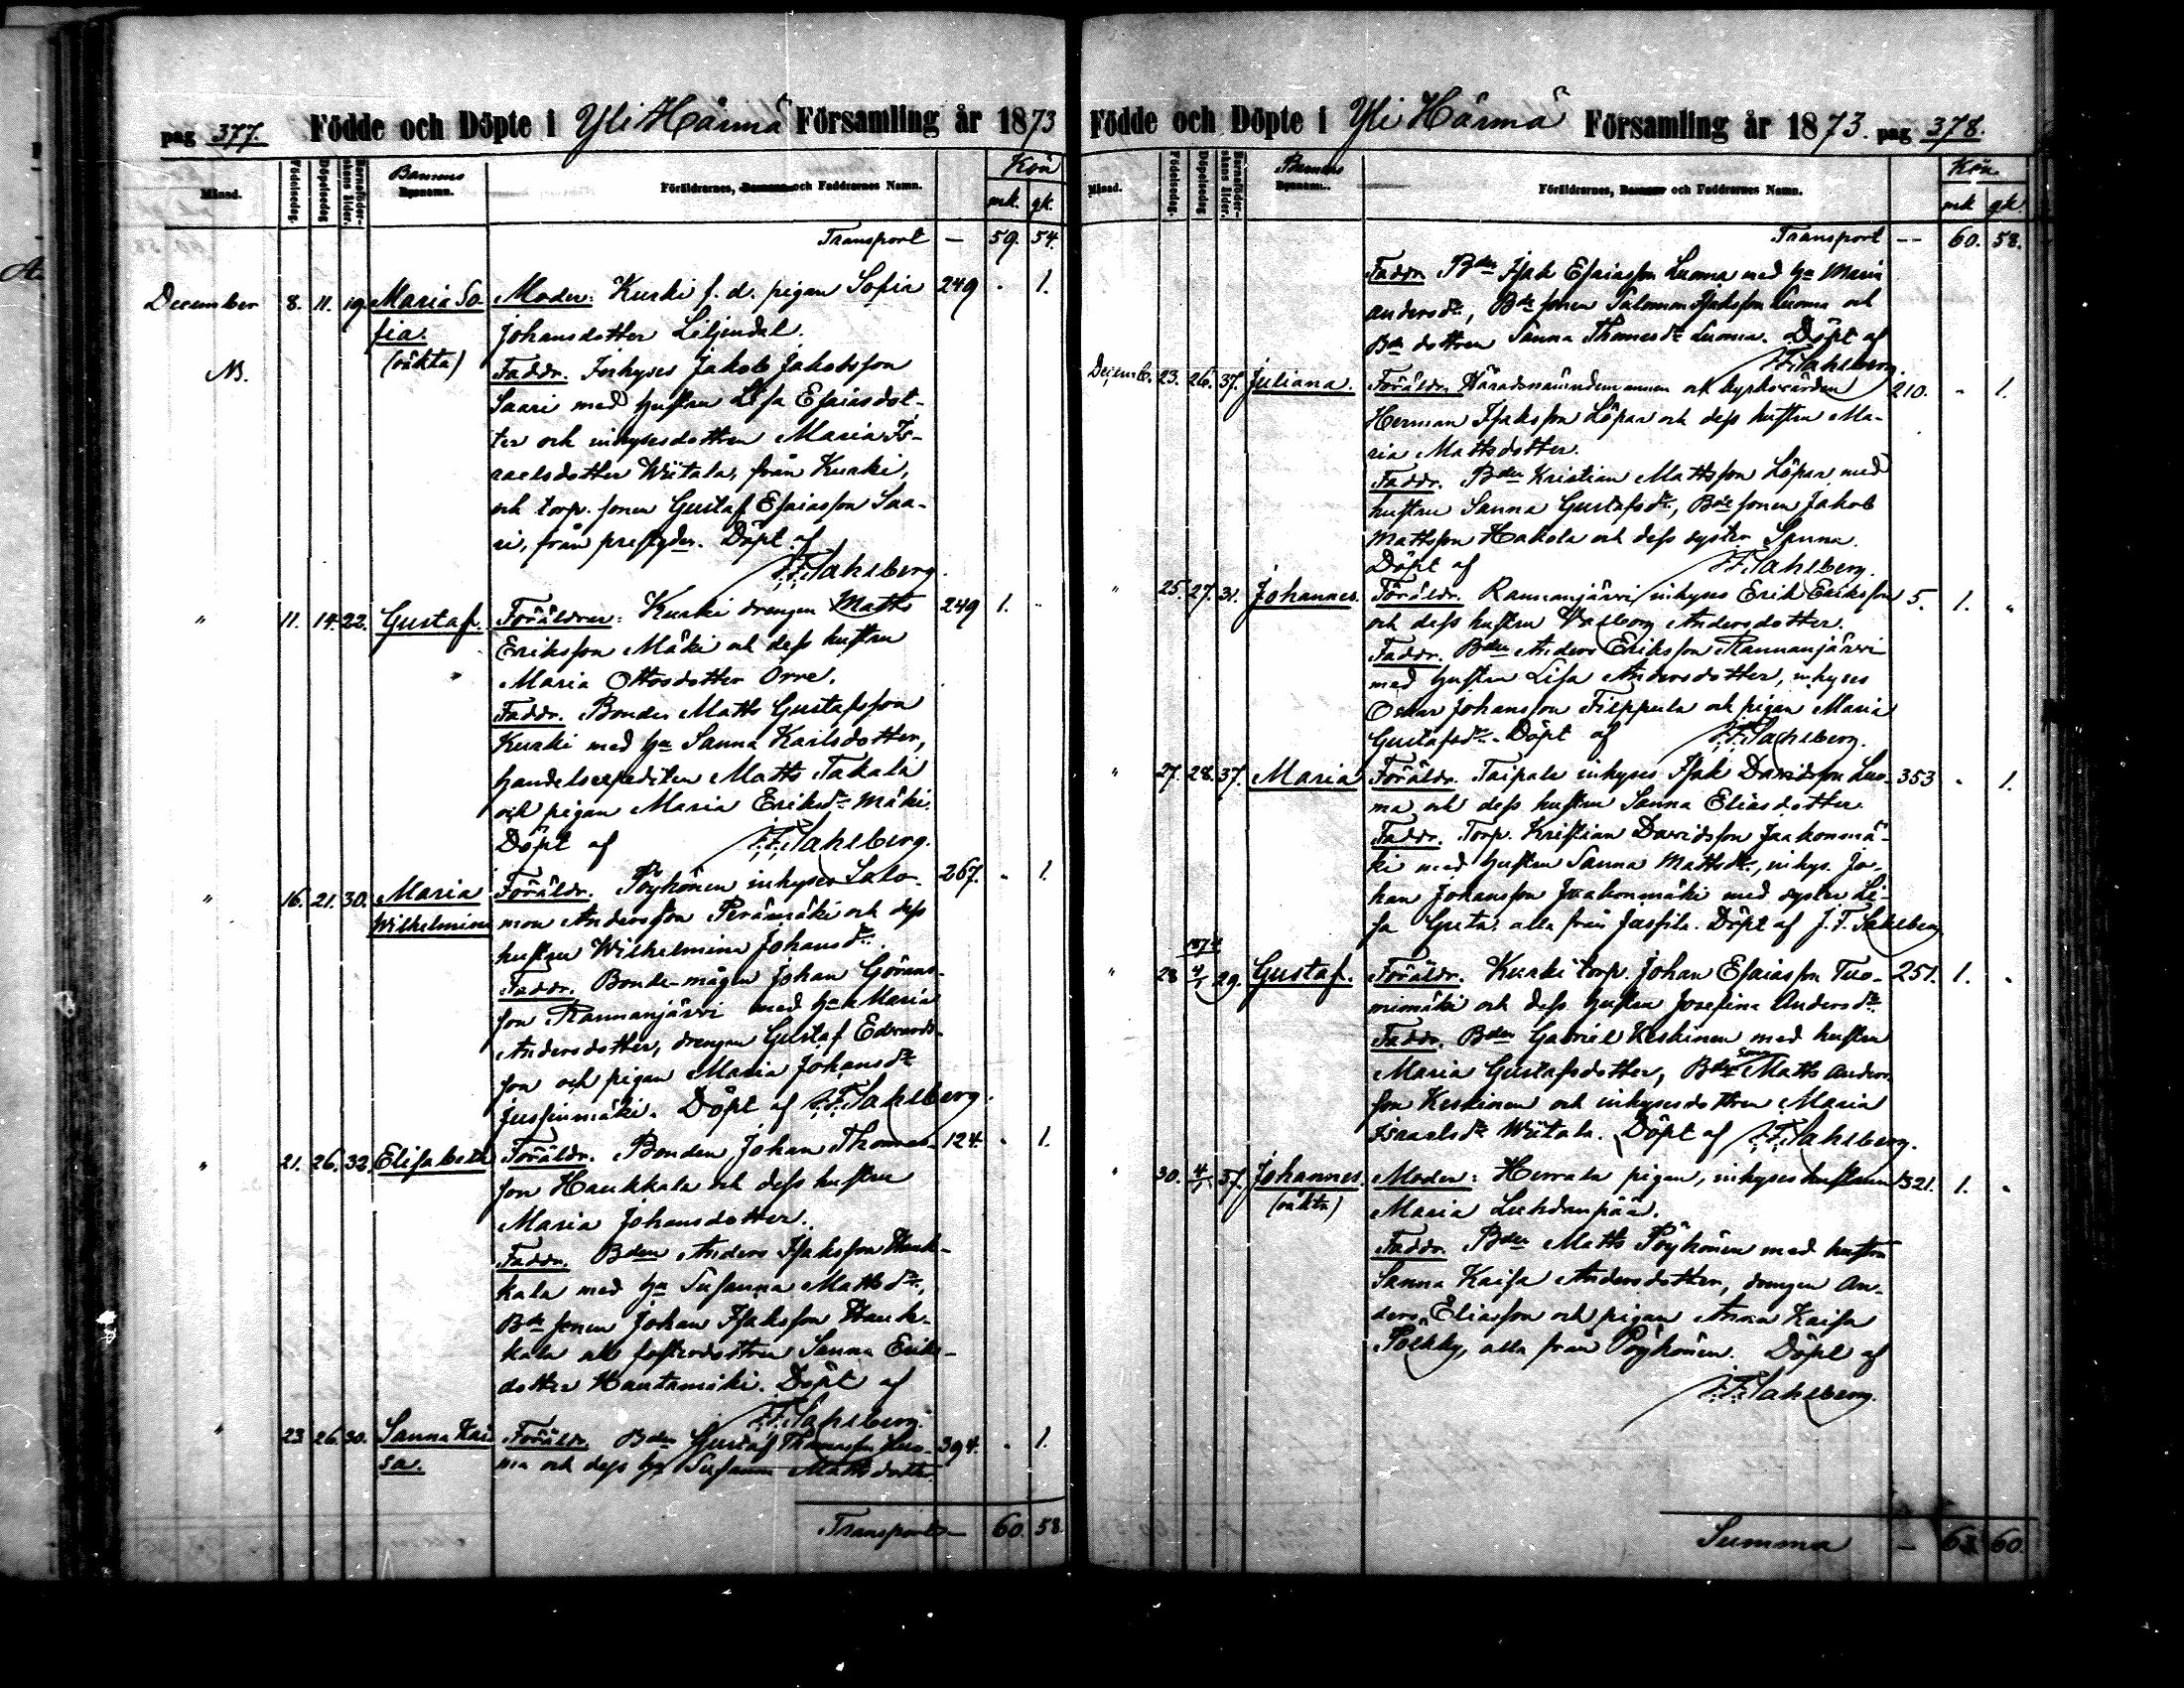 pag 377. Födde och Döpte i Yli Härmä Församling år 1873
Månad. Födelsedag. Döpelsedag Barnaföderskans ålder. Barnens Föräldrarnes, och Faddrarnes Namn. Kön
mk. qk.
Transport — 59. 54.
December 8. 11. 19. Maria So- Moder: Kurki f. d. pigan Sofia 249 - 1.
fia. Johansdotter Liljendal.
(oäkta) Faddr. Inhyses Jakob Jakobsson
Saari med hustru Lisa Esaiasdot-
ter och inhysesdottren Maria Is-
raelsdotter Wiitala, från Kurki,
och torp. sonen Gustaf Esaiasson Saa-
ri, från Döpt af
J. F. Sahlberg.
" 11. 14. 22. Gustaf. Föräldrar: Kurki drengen Matts 249 1. -
Eriksson Mäki och dess hustru
Maria Ottosdotter Orre.
Faddr. Bonden Matts Gustafsson
Kurki med hu Sanna Karlsdotter,
handelsexpediten Matts Takala
och pigan Maria Eriksdr Mäki.
Döpt af J. F. Sahlberg.
" 16. 21. 30. Maria Föräldr. Pöyhönen inhyses Salo- 267. - 1.
Wilhelmina mon Andersson Perämäki och dess
hustru Wilhelmina Johansdr.
Faddr. Bonde-mågen Johan Görans-
son Rannanjärvi med hu Maria
Andersdotter, drengen Gustaf Edwards-
son och pigan Maria Johansdr
Jussinmäki. Döpt af J. F. Sahlberg.
" 21. 26. 32. Elisabeth Föräldr. Bonden Johan Thomas- 124. - 1.
son Haukkala och dess hustru
Maria Johansdotter.
Faddr. Bden Anders Isaksson Hauk-
kala med hu Susanna Mattsdr.,
Bde sonen Johan Isaksson Hauk-
kala och fosterdottren Sanna Eriks-
dotter Hautamäki. Döpt af
J. F. Sahlberg.
" 23. 26. 30. Sanna Kai- Föräldr. Bden Gustaf Thomasson Luo- 394. - 1.
sa. ma och dess hu Susanna Mattsdottr.
Transport — 60. 58.
Födde och Döpte i Yli Härmä Församling år 1873. pag 378.
Månad. Födelsedag. Döpelsedag Barnaföderskans ålder. Barnens Föräldrarnes, och Faddrarnes Namn. Kön.
mk qk.
Transport — 60. 58.
Faddr. Bden Isak Esaiasson Luoma med hu Maria
Andersdr, Bde sonen Salomon Isaksson Luoma och
Bde dottren Sanna Thomasdr Luoma. Döpt af
J. F. Sahlberg.
Decemb. 23. 26. 37. Juliana. Föräldr. Häradsnämndemannen och kyrkovärden 210. - 1.
Herman Isaksson Löpar och dess hustru Ma-
ria Mattsdotter.
Faddr. Bden Kristian Mattsson Löpar med
hustru Sanna Gustafsdr, Bde sonen Jakob
Mattsson Hakola och dess syster Sanna.
Döpt af J. F. Sahlberg.
" 25. 27. 31. Johannes. Föräldr. Rannanjärvi inhyses Erik Eriksson 5. 1. "
och dess hustru Walborg Andersdotter.
Faddr. Bden Anders Eriksson Rannanjärvi
med hustru Lisa Andersdotter, inhyses
Oskar Johansson Filppula och pigan Maria
Gustafsdr. Döpt af J. F. Sahlberg.
" 27. 28. 37. Maria Föräldr. Taipale inhyses Isak Davidsson Luo- 353 - 1.
ma och dess hustru Sanna Eliasdotter.
Faddr. Torp. Kristian Davidsson Jaakonmä-
ki med hustru Sanna Mattsdr, inhys. Jo-
han Johansson Jaakonmäki med syster Li-
sa Greta, alla från Jassila. Döpt af J. F. Sahlberg
1874
" 28 4/1 29. Gustaf. Föräldr. Kurki torp. Johan Esaiasson Tuo- 251. 1. -
mimäki och dess hustru Josefina Andersdr.
Faddr. Bden Gabriel Keskinen med hustru
Maria Gustafsdotter, Bde son Matts Anders-
son Keskinen och inhysesdottren Maria
Israelsdr Wiitala. Döpt af J. F. Sahlberg.
" 30. 4/1. 37. Johannes. Moder: Herrala pigan, inhyses hustrun 321. 1. -
(oäkta) Maria Luhdanpää.
Faddr. Bden Matts Pöyhönen med hustru
Sanna Kaisa Andersdotter, drengen An-
ders Eliasson och pigan Anna Kaisa
Pölkky, alla från Pöyhönen. Döpt af
J. F. Sahlberg.
Summa — 63 60.